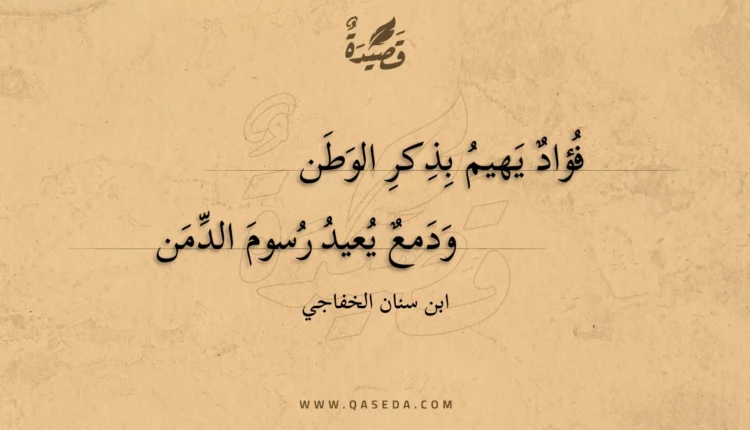 قَصِيْدَةٌ
فُؤادٌ يَهيمُ بِذِكرِ الوَطَن
وَدَمعٌ يُعيدُ رُسومَ الدِّمَن
ابن سنان الخفاجي
WWW.QASEDA.COM